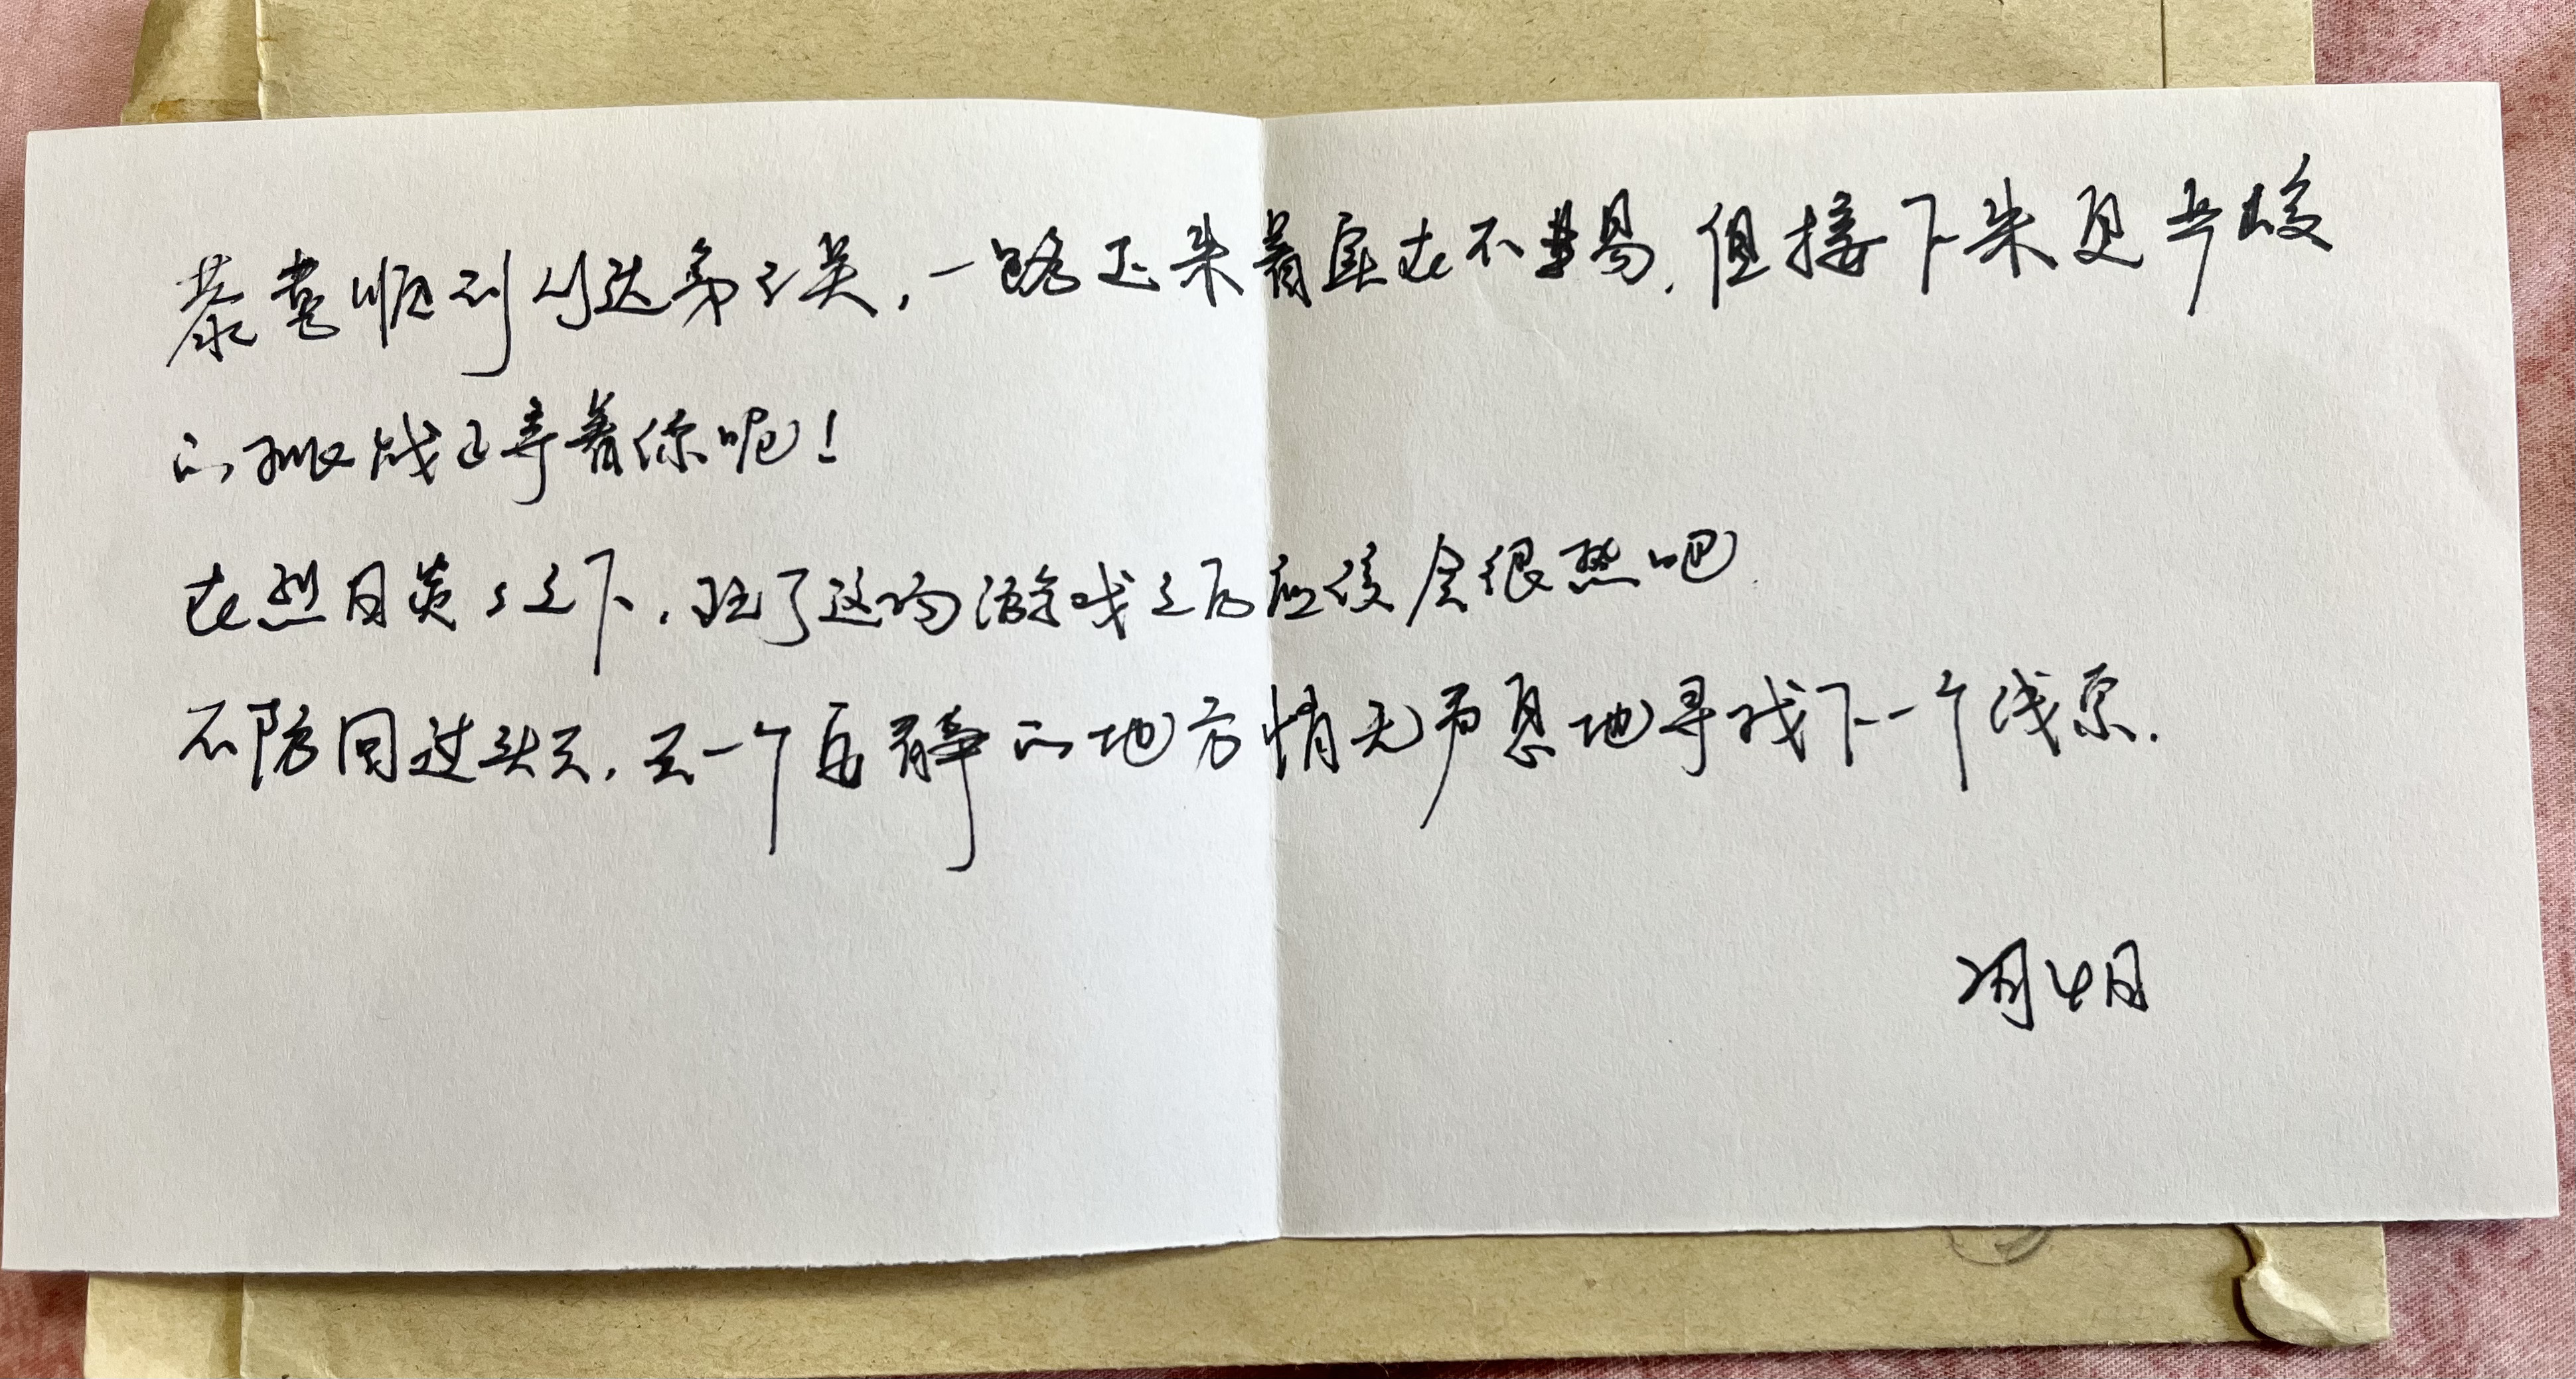 恭喜顺利到达第三关，一路过来着实在不容易，但接下来更严峻
的挑战正等着你呢！
在烈日炎々之下，玩了这场游戏之后应该会很热吧
不防回过头去，去一个安静的地方悄无声息地寻找下一个线索。